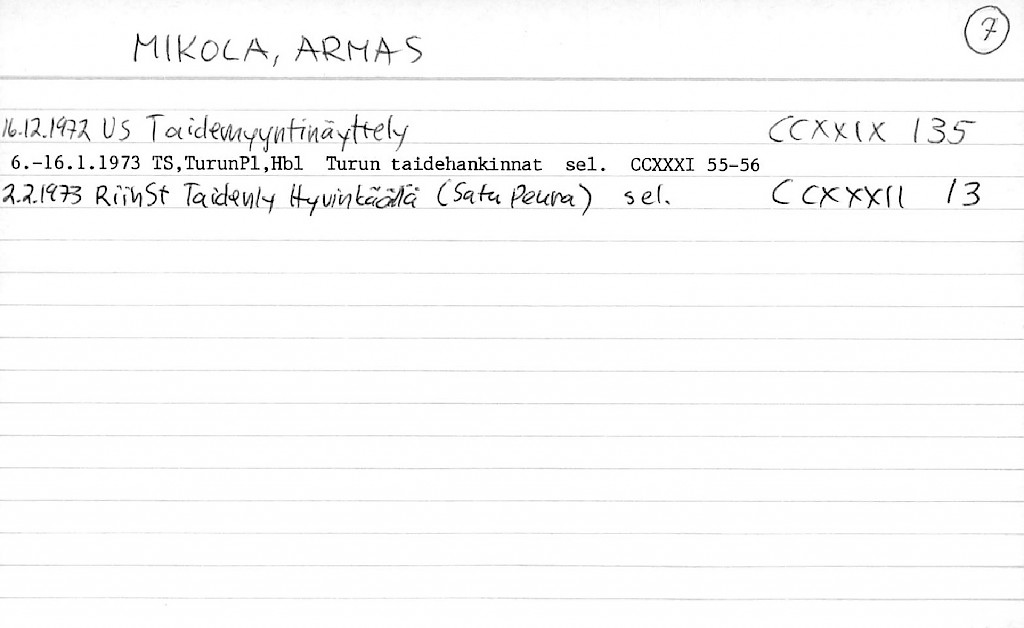 7
MIKOLA, ARMAS
16.12.1972 US Taidemyyntinäyttely CCXXIX 135
6.-16.1.1973 TS,TurunPl,Hbl Turun taidehankinnat sel. CCXXXI 55-56
2.2.1973 RiihSt Taidenly Hyvinkäällä (Satu Peura) sel. CCXXXII 13